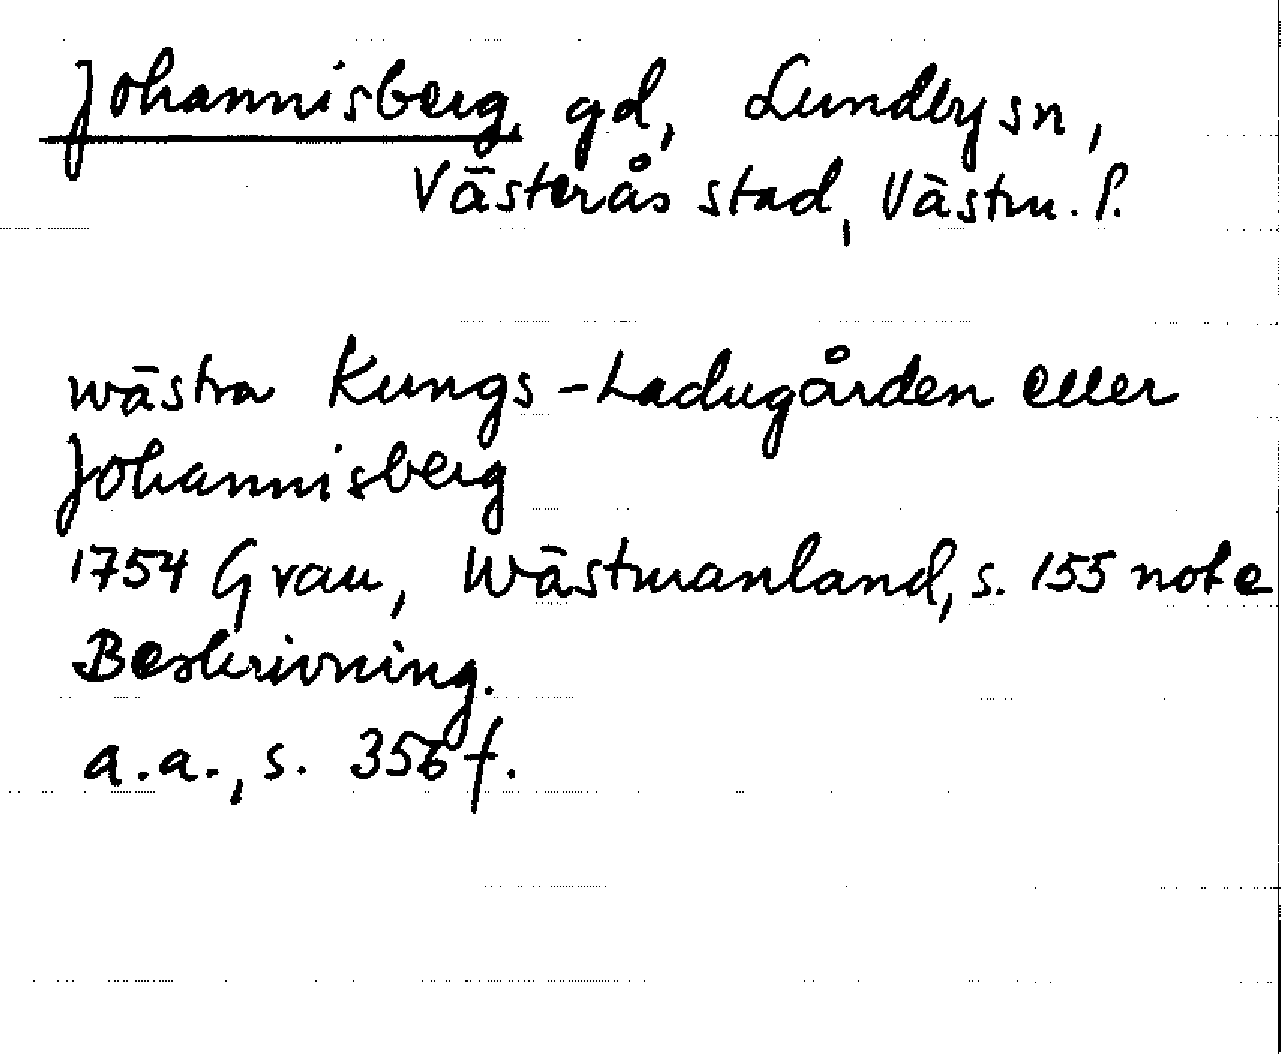 Johannisberg, gd, Lundby sn,
Västerås stad, Västm. l.
wästra Kungs-Ladugården eller
Johannisberg
1754 Grau, Wästmanland, s. 155 note
Beskrivning.
a.a., s. 356 f.